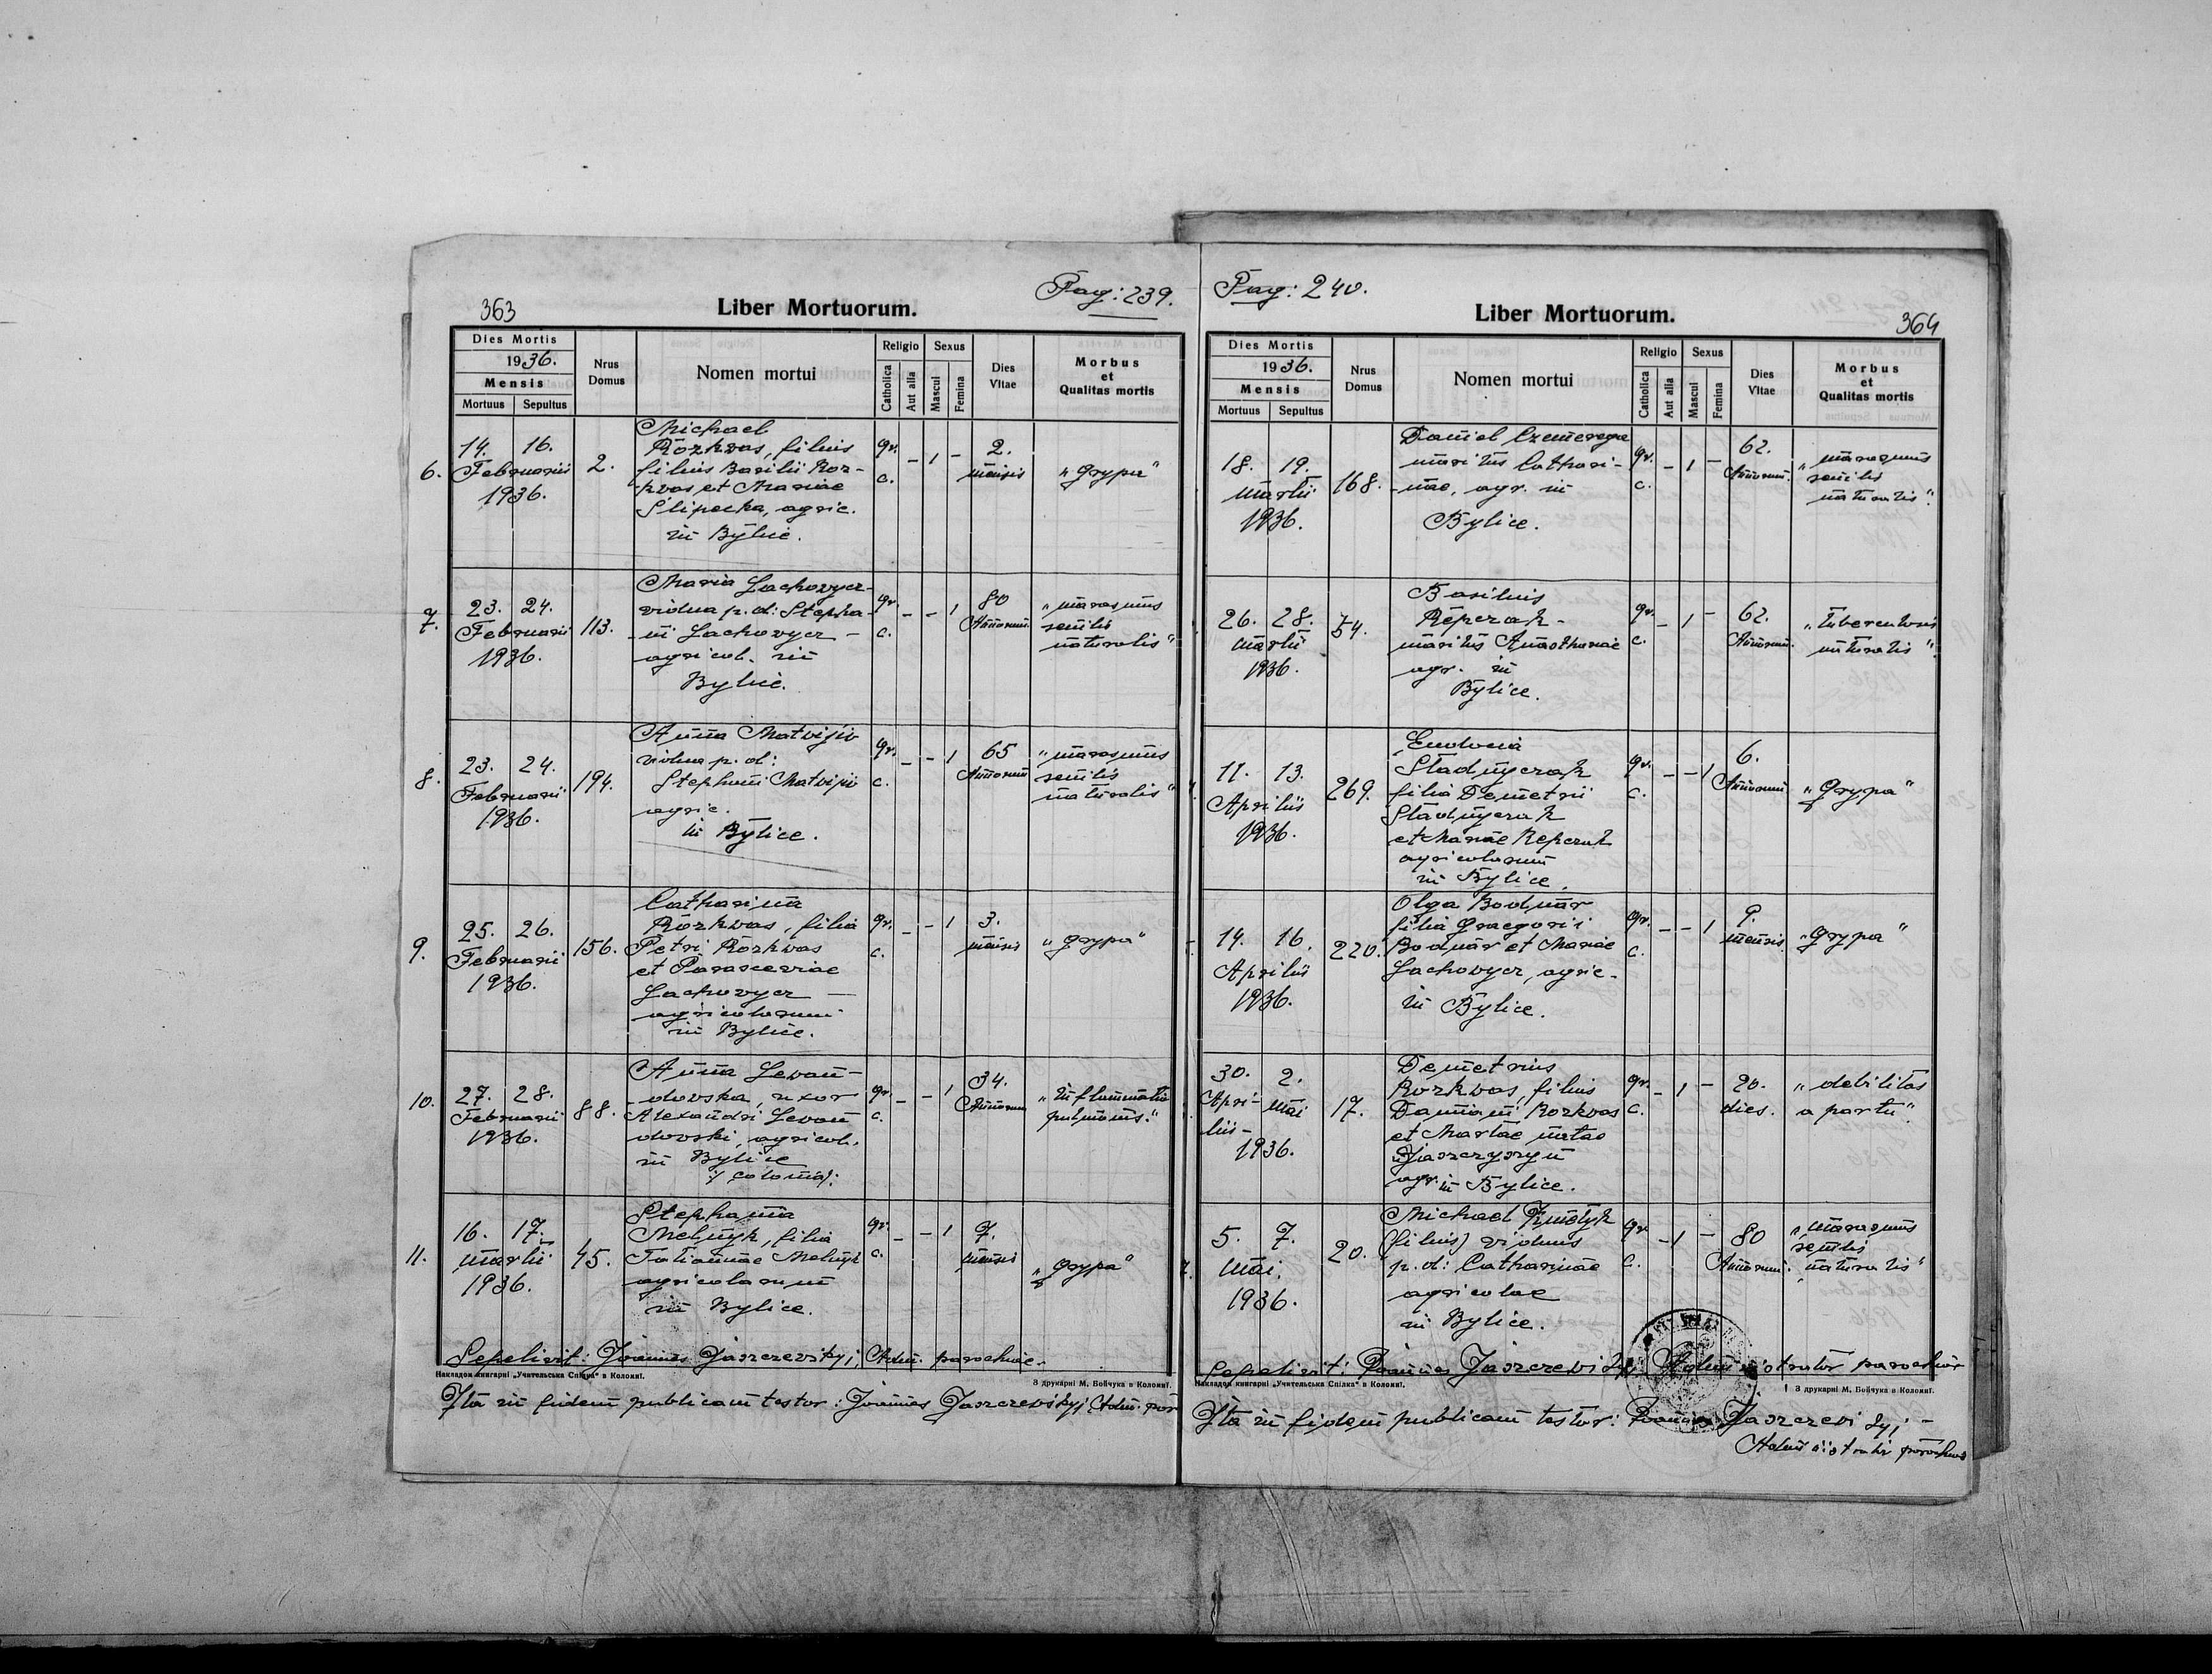 363
Liber Mortuorum.
Pag: 239.
Dies Mortis
1936.
Mensis
Mortuus Sepultus
Nrus Domus
Nomen mortui
Religio
Catholica
Aut alia
Sexus
Mascul
Femina
Dies Vitae
Morbus et Qualitas mortis
6.
14. 16.
Februarii
1936.
2.
Michael
Rozkwas, filius
filius Basilii Roz-
kwas et Mariae
Slipecka, agric.
in Bylice.
gr. c. - 1 -
2. mensis
"Grypa"
7.
23. 24.
Februarii
1936.
113.
Maria Lachowycz-
vidua p. d: Stepha-
ni Lachowycz -
agricol. in
Bylice.
gr. c. - - 1
80 Annorum
"marasmus
senilis
naturalis"
8.
23. 24.
Februarii
1936.
194.
Anna Matvijiv
vidua p. d:
Stephani Matvijiv
agric.
in Bylice.
gr. c. - - 1
65 Annorum
"marasmus
senilis
naturalis"
9.
25. 26.
Februarii
1936.
156.
Catharina
Rozkwas, filia
Petri Rozkwas
et Parasceviae
Lachowycz -
agricolarum
in Bylice.
gr. c. - - 1
3. mensis
"Grypa"
10.
27. 28.
Februarii
1936.
88.
Anna Levan-
dovska, uxor
Alexandri Levan
dovski, agricol.
in Bylice
/: colonia/:
gr. c. - - 1
34. Annorum
"Inflammatio
pulmonis."
11.
16. 17.
Martii
1936.
45.
Stephania
Melnyk, filia
Tatiannae Melnyk
agricolarum
in Bylice.
gr. c. - - 1
7. mensis
"Grypa"
Sepelivit: Joannes Jaszczevskyj, Adm. parochiae.
Накладом книгарні „Учительська Спілка" в Коломиї.
З друкарні М. Бойчука в Коломиї.
Ita in fidem publicam testor: Joannes Jaszczevskyj Adm. par
Pag: 240.
Liber Mortuorum.
364
Dies Mortis
1936.
Mensis
Mortuus Sepultus
Nrus Domus
Nomen mortui
Religio
Catholica
Aut alia
Sexus
Mascul
Femina
Dies Vitae
Morbus et Qualitas mortis
18. 19.
Martii
1936.
168.
Daniel
maritus Cathari-
nae, agr. in
Bylice.
gr. c. - 1 -
62. Annorum.
"marasmus
senilis
naturalis".
26. 28.
Martii
1936.
54.
Basilius
Repczak-
maritus Anasthasiae
agr. in
Bylice.
gr. c. - 1 -
62. Annorum.
"tuberculosis
naturalis".
11. 13.
Aprilis
1936.
269.
Eudocia
Stadnyczak
filia Demetrii
Stadnyczak
et Mariae Repczak
agricolarum
in Bylice.
gr. c. - - 1
6. Annorum
"Grypa"
14. 16.
Aprilis
1936.
220.
Olga Bodnar
filia Gregorii
Bodnar et Mariae
Lachowycz, agric-
in Bylice.
gr. c. - - 1
9. mensis
"Grypa"
30. 2.
Apri- Mai
lis-
1936.
17.
Demetrius
Rozkwas, filius
Damiani Rozkwas
et Martae natae
Jaszczyszyn
agr. in Bylice.
gr. c. - 1 -
20. dies.
"debilitas
a partu".
5. 7.
Mai.
1936.
20.
Michael
(filius) viduus
p. d: Catharinae
agricolae
in Bylice.
gr. c. - 1 -
80 Annorum.
"Marasmus
senilis
naturalis"
Sepelivit: Joannes Jaszczevskyj Administrator parochiae
Накладом книгарні „Учительська Спілка" в Коломиї.
З друкарні М. Бойчука в Коломиї.
Ita in fidem publicam testor: Joannes Jaszczevskyj -
Administrator parochiae